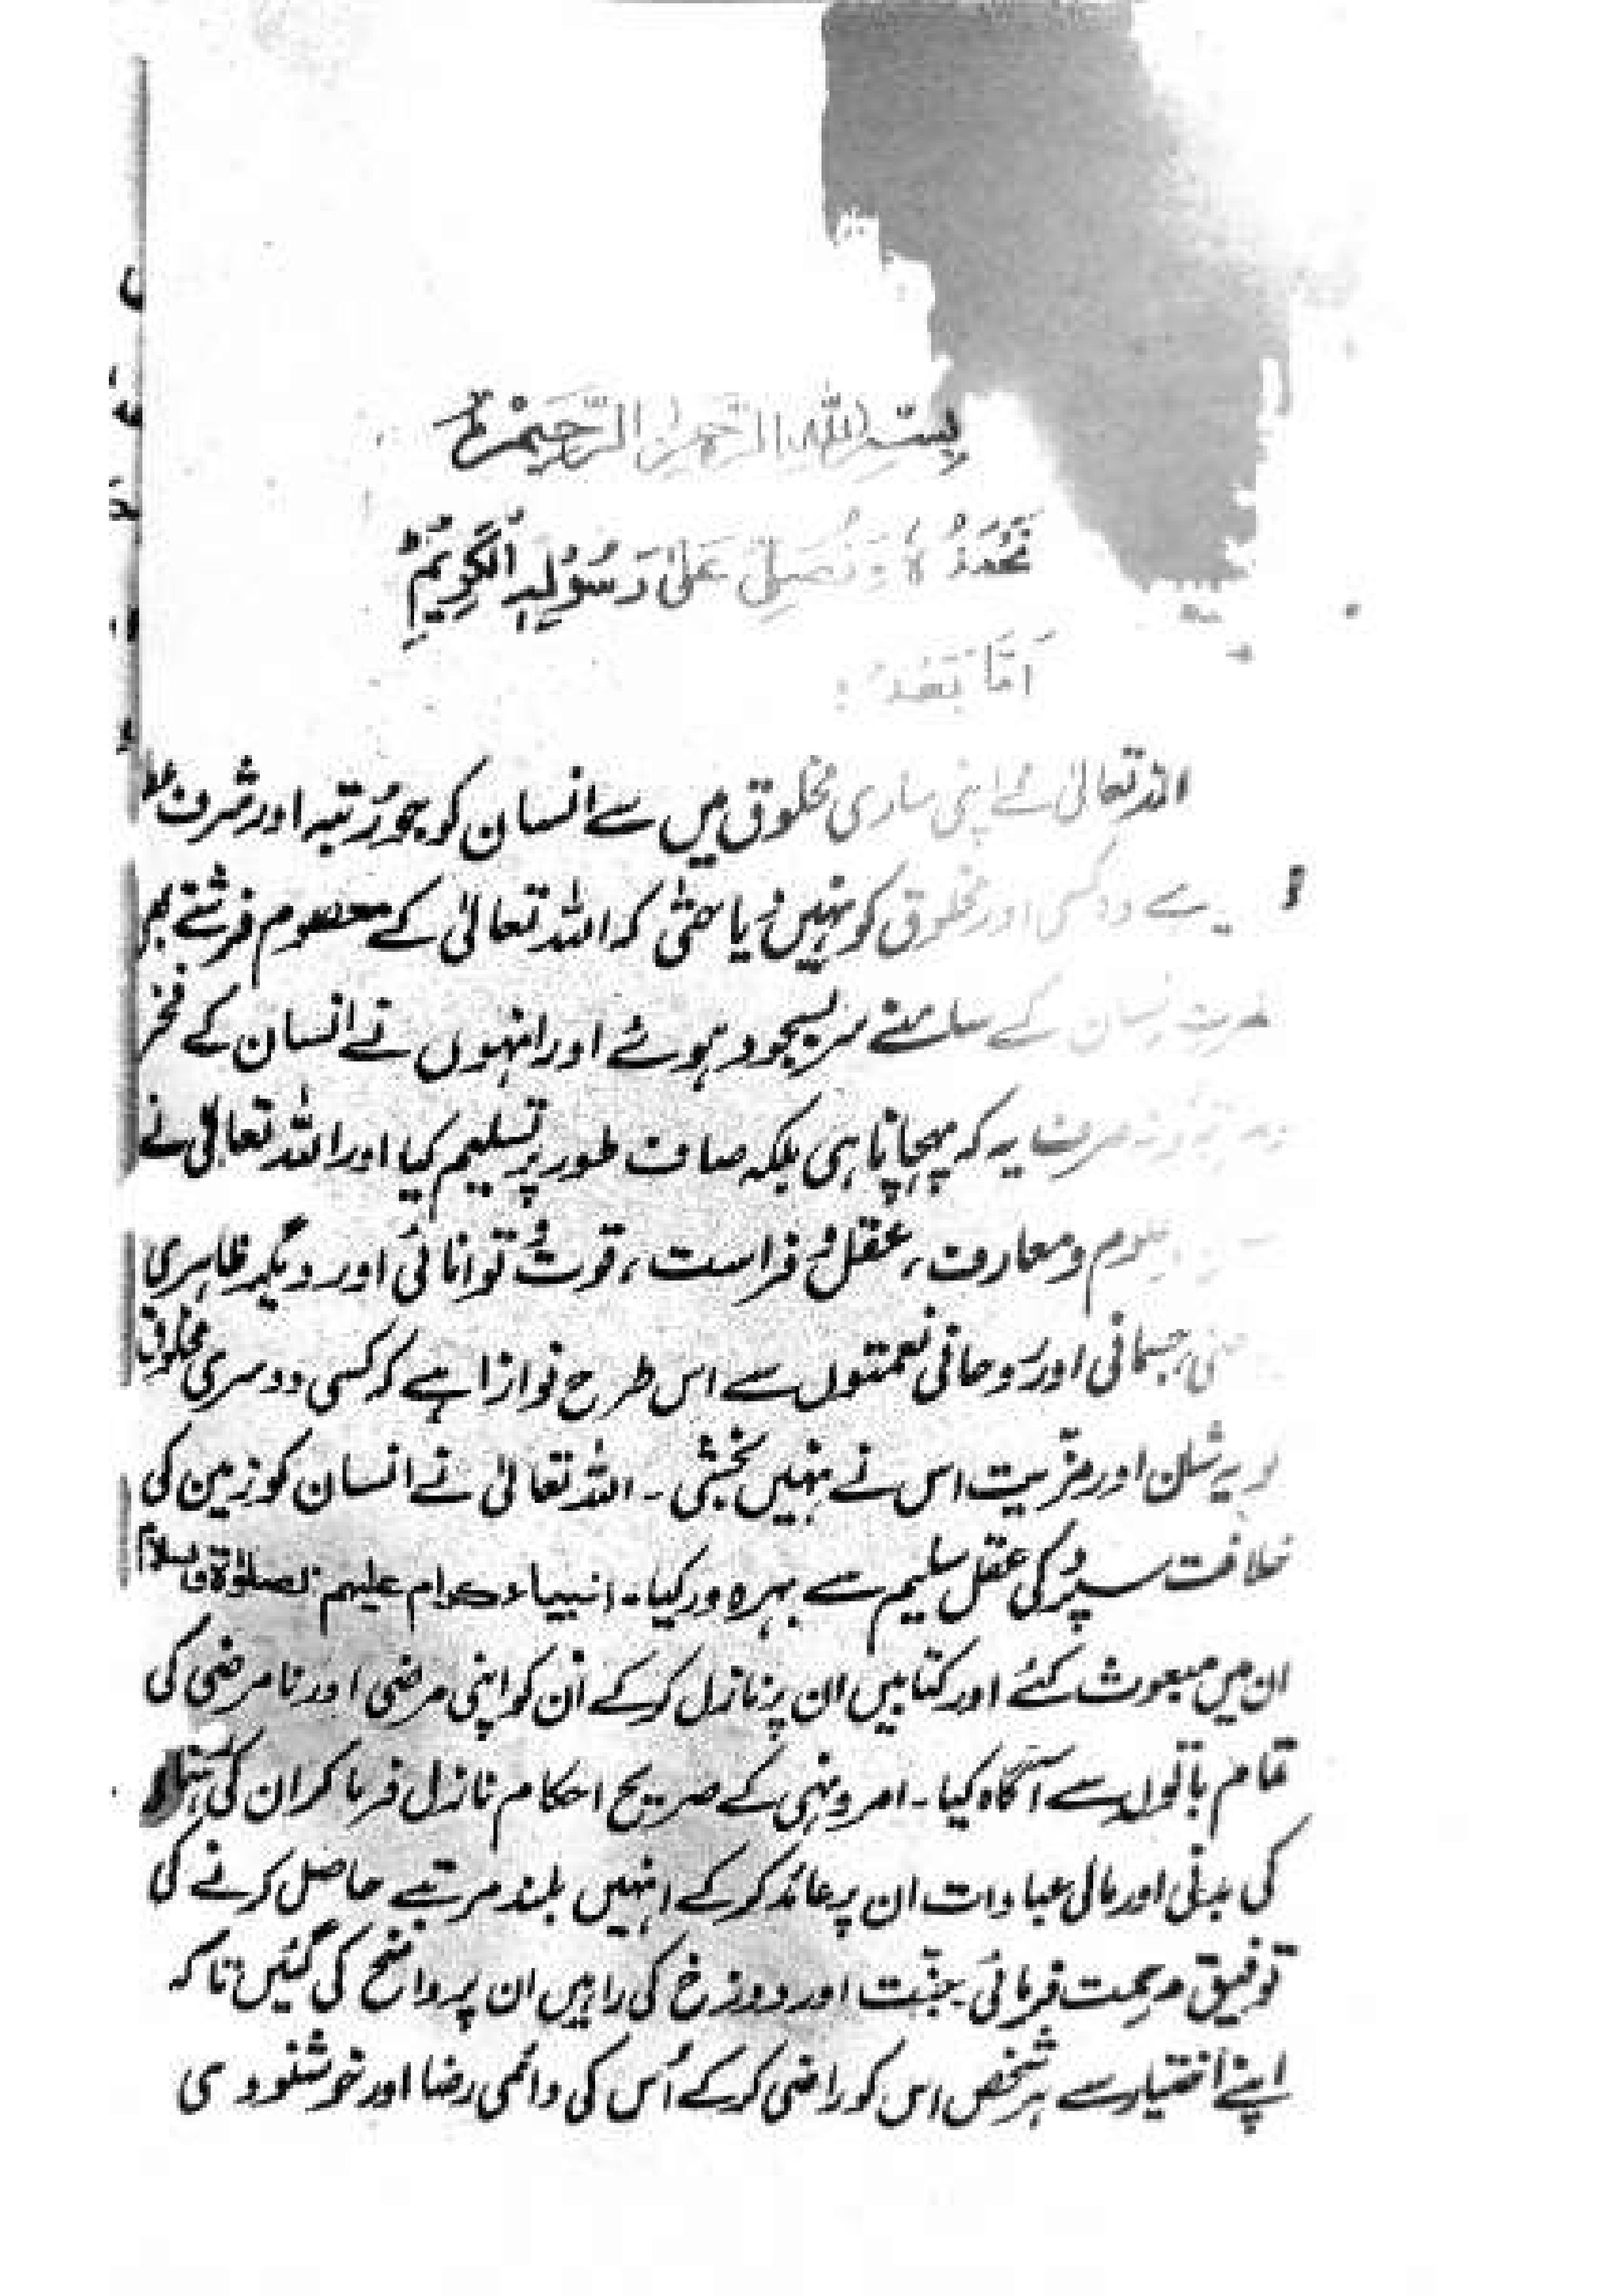 بِسْمِ اللّٰہِ الرَّحْمٰنِ الرَّحِیْمِ
نَحْمَدُہٗ وَ نُصَلِّیْ عَلٰی رَسُوْلِہِ الْکَرِیْمِ
اَمَّا بَعْدُ :
اللہ تعالیٰ نے اپنی ساری مخلوق میں سے انسان کو جو رُتبہ اور شرف
کسی اور مخلوق کو نہیں دیا حتٰی کہ اللہ تعالیٰ کے معصوم فرشتے بھی
انسان کے سامنے سر بسجود ہوئے اور انہوں نے انسان کے فخر
صرف یہ کہ پہچانا ہی بلکہ صاف طور پر تسلیم کیا اور اللہ تعالیٰ نے
علوم و معارف، عقل و فراست، قوت و توانائی اور دیگر ظاہری
جسمانی اور رُوحانی نعمتوں سے اس طرح نوازا ہے کہ کسی دوسری مخلوق
یہ شان اور مزّیت اس نے نہیں بخشی ۔ اللہ تعالیٰ نے انسان کو زمین کی
خلافت سپرد کی عقل سلیم سے بہرہ ور کیا۔ انبیاء کرام علیہم الصلوٰۃ والسلام
ان میں مبعوث کئے اور کتابیں ان پر نازل کر کے اُن کو اپنی مرضی اور نا مرضی کی
تمام باتوں سے آگاہ کیا۔ امر و نہی کے صریح احکام نازل فرما کر ان کی
کی بدنی اور مالی عبادات ان پر عائد کر کے انہیں بلند مرتبے حاصل کرنے کی
توفیق مرحمت فرمائی۔ جنّت اور دوزخ کی راہیں ان پر واضح کی گئیں تاکہ
اپنے اختیار سے ہر شخص اس کو راضی کر کے اُس کی دائمی رضا اور خوشنودی